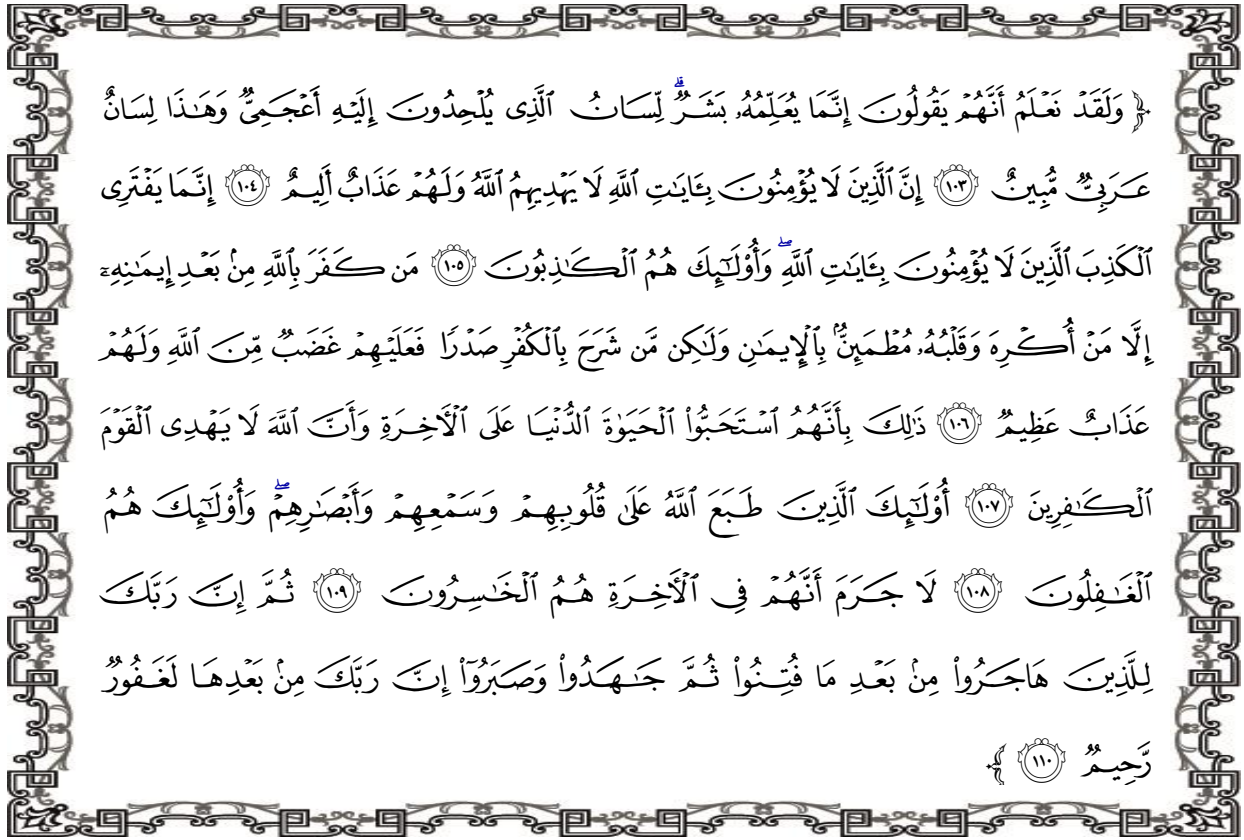 ﴿ وَلَقَدۡ نَعۡلَمُ أَنَّهُمۡ يَقُولُونَ إِنَّمَا يُعَلِّمُهُۥ بَشَرٞۗ لِّسَانُ ٱلَّذِي يُلۡحِدُونَ إِلَيۡهِ أَعۡجَمِيّٞ وَهَٰذَا لِسَانٌ
عَرَبِيّٞ مُّبِينٌ ١٠٣ إِنَّ ٱلَّذِينَ لَا يُؤۡمِنُونَ بِـَٔايَٰتِ ٱللَّهِ لَا يَهۡدِيهِمُ ٱللَّهُ وَلَهُمۡ عَذَابٌ أَلِيمٌ ١٠٤ إِنَّمَا يَفۡتَرِي
ٱلۡكَذِبَ ٱلَّذِينَ لَا يُؤۡمِنُونَ بِـَٔايَٰتِ ٱللَّهِۖ وَأُوْلَٰٓئِكَ هُمُ ٱلۡكَٰذِبُونَ ١٠٥ مَن كَفَرَ بِٱللَّهِ مِنۢ بَعۡدِ إِيمَٰنِهِۦٓ
إِلَّا مَنۡ أُكۡرِهَ وَقَلۡبُهُۥ مُطۡمَئِنُّۢ بِٱلۡإِيمَٰنِ وَلَٰكِن مَّن شَرَحَ بِٱلۡكُفۡرِ صَدۡرٗا فَعَلَيۡهِمۡ غَضَبٞ مِّنَ ٱللَّهِ وَلَهُمۡ
عَذَابٌ عَظِيمٞ ١٠٦ ذَٰلِكَ بِأَنَّهُمُ ٱسۡتَحَبُّواْ ٱلۡحَيَوٰةَ ٱلدُّنۡيَا عَلَى ٱلۡأٓخِرَةِ وَأَنَّ ٱللَّهَ لَا يَهۡدِي ٱلۡقَوۡمَ
ٱلۡكَٰفِرِينَ ١٠٧ أُوْلَٰٓئِكَ ٱلَّذِينَ طَبَعَ ٱللَّهُ عَلَىٰ قُلُوبِهِمۡ وَسَمۡعِهِمۡ وَأَبۡصَٰرِهِمۡۖ وَأُوْلَٰٓئِكَ هُمُ
ٱلۡغَٰفِلُونَ ١٠٨ لَا جَرَمَ أَنَّهُمۡ فِي ٱلۡأٓخِرَةِ هُمُ ٱلۡخَٰسِرُونَ ١٠٩ ثُمَّ إِنَّ رَبَّكَ
لِلَّذِينَ هَاجَرُواْ مِنۢ بَعۡدِ مَا فُتِنُواْ ثُمَّ جَٰهَدُواْ وَصَبَرُوٓاْ إِنَّ رَبَّكَ مِنۢ بَعۡدِهَا لَغَفُورٞ
رَّحِيمٞ ١١٠ ﴾